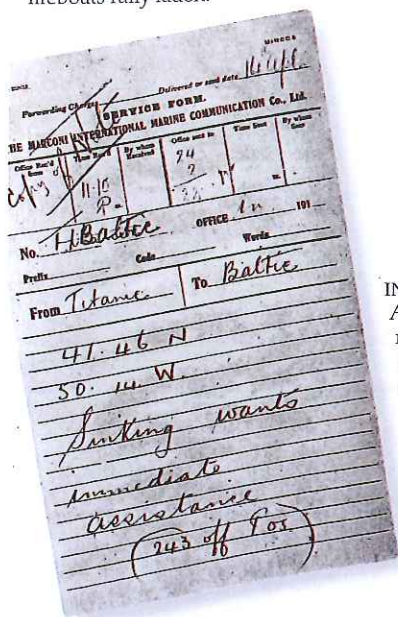 fully laden.
Forwarding Charge
Delivered or send date 14 Apl
SERVICE FORM.
THE MARCONI INTERNATIONAL MARINE COMMUNICATION Co., Ltd.
Office Rec'd from
Time Rec'd
By whom Received
Office sent to
Time Sent
By whom Sent
Copy of
11-10
P.
24
No. HBaltic OFFICE 191
Prefix Code Words
From Titanic To Baltic
41.46 N
50.14 W.
Sinking wants
immediate
assistance
(243 off Pos)
IN
A